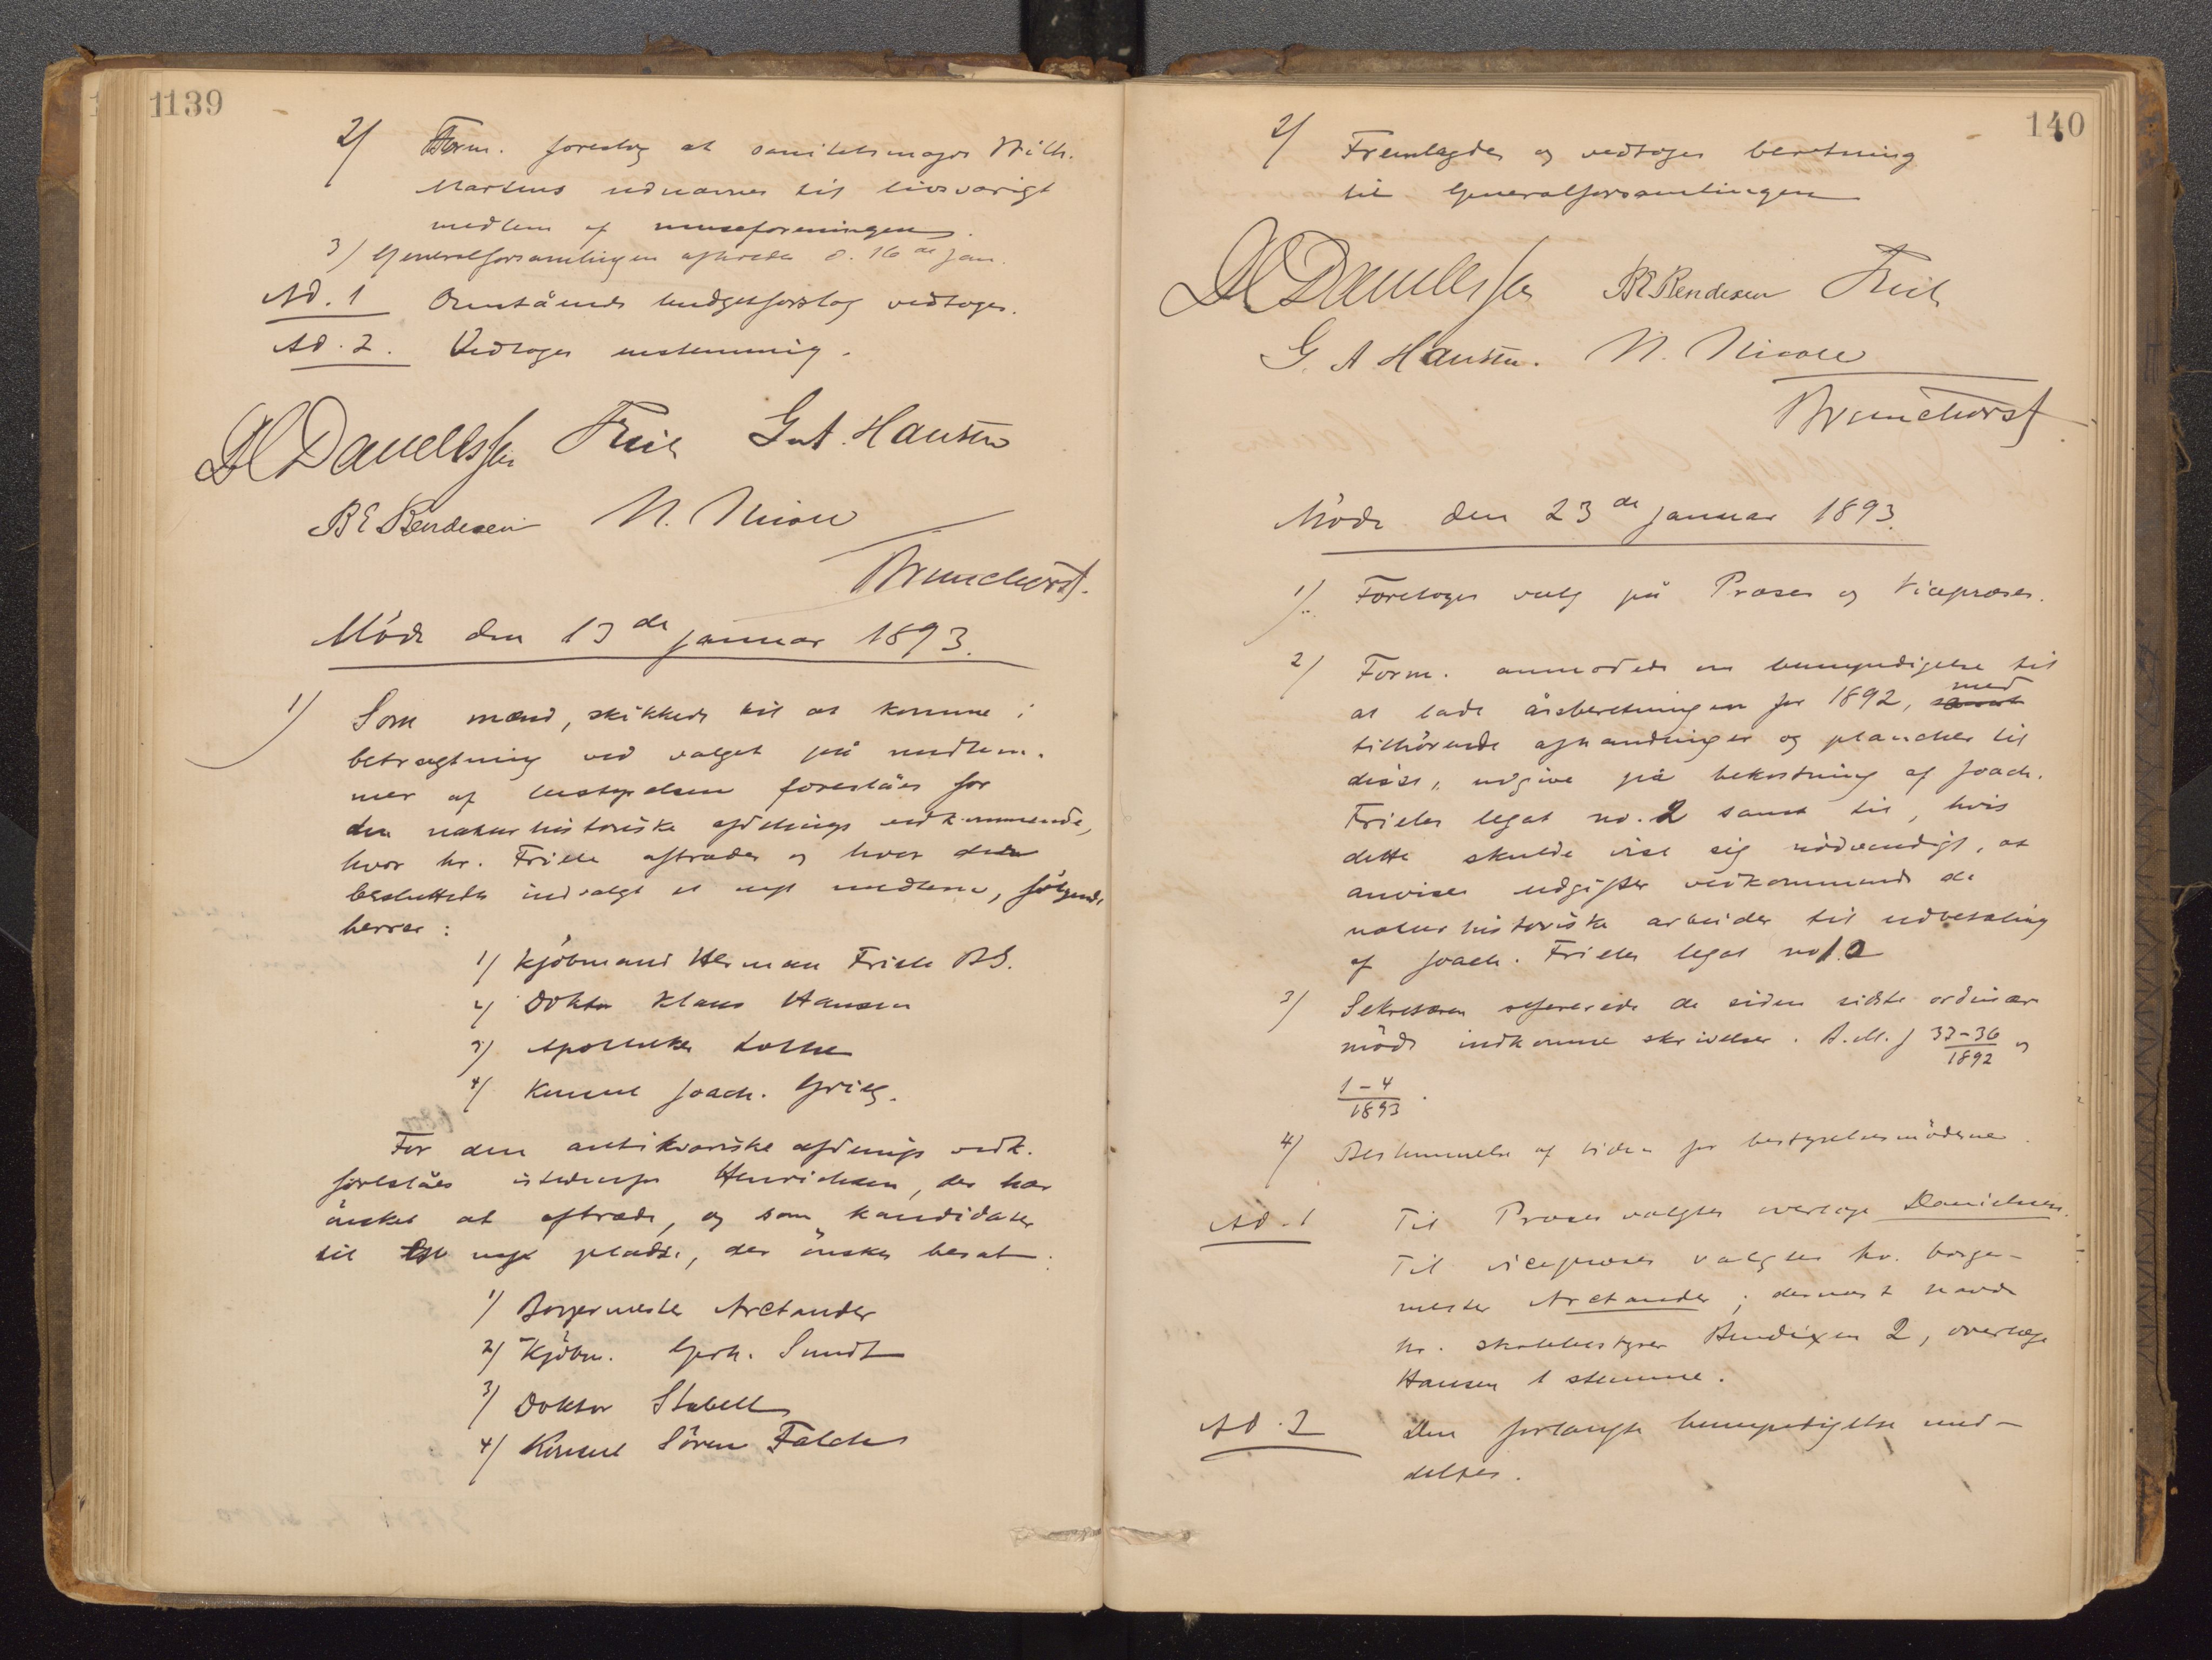 139
2) Form. foreslog at sanitetsmajor Wilh.
Martens udnævnes til livsvarigt
medlem af museforeningen.
3) Generalforsamlingen afholdes d. 16de jan.
Ad. 1 Omstående budgetforslag vedtoges.
Ad. 2. Vedtoges enstemmig.
DC Danielssen Friele G A. Hansen
B E Bendixen N. Nicoll
Brunchorst.
Möde den 13de januar 1893.
1) Som mænd, skikkede til at komme i
betragtning ved valget på medlem-
mer af bestyrelsen foreslåes for
den naturhistoriske afdelings vedkommende,
hvor hr. Friele aftræder og hvor den
besluttedes indvalgt et nyt medlem, følgende
herrer:
1) Kjöbmand Herman Friele BS.
2) Doktor Klaus Hansen
3) Apotheker Lothe
4) Konsul Joach. Grieg.
For den antikvariske afdelings vedk.
foreslåes istedenfor Henrichsen, der har
önsket at aftræde, og som kandidater
til den nye plads, der önskes besat:
1) Borgermester Arctander
2) Kjöbm. Gerh. Sundt
3) Doktor Stabell
4) Konsul Sören Falch
140
2) Fremlagdes og vedtoges beretning
til Generalforsamlingen
DC Danielssen B E Bendixen Friele
G. A Hansen. N. Nicoll
Brunchorst.
Möde den 23de januar 1893.
1) Foretoges valg på Præses og Vicepræses.
2) Form. anmodede om bemyndigelse til
at lade årsberetningen for 1892, samt med
tilhörende afhandlinger og plancher til
disse, udgive på bekostning af Joach.
Frieles legat no. 2 samt til, hvis
dette skulde vise sig nödvendigt, at
anvise udgifter vedkommende de
naturhistoriske arbeider til udbetaling
af Joach. Frieles legat no 2
3) Sekretæren refererede de siden sidste ordinære
möde indkomne skrivelser. B.M.J 33-36/1892 og
1-4/1893.
4) Bestemmelse af tiden for bestyrelsesmöderne.
Ad. 1 Til Præses valgtes overlæge Danielssen.
Til vicepræses valgtes hr. borge-
mester Arctander; dernæst havde
hr. skolebestyrer Bendixen 2, overlæge
Hansen 1 stemme.
Ad. 2 Den forlangte bemyndigelse med-
deltes.